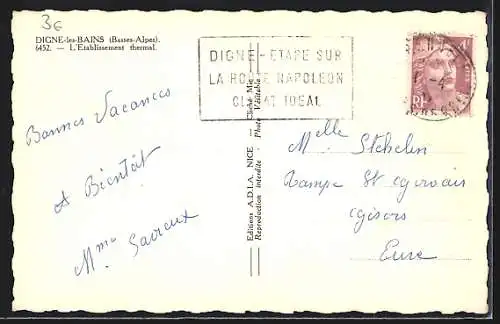 3€
DIGNE-les-BAINS (Basses-Alpes).
6452. — L'Etablissement thermal.
DIGNE - ETAPE SUR
LA ROUTE NAPOLEON
CLIMAT IDEAL
Bonnes Vacances
A Bientôt
Mme
Editions A.D.I.A. NICE. — Cliché Mic
Reproduction interdite - Photo Véritable
Melle Stehelin
Rampe St Gervais
Gisors
Eure
RF